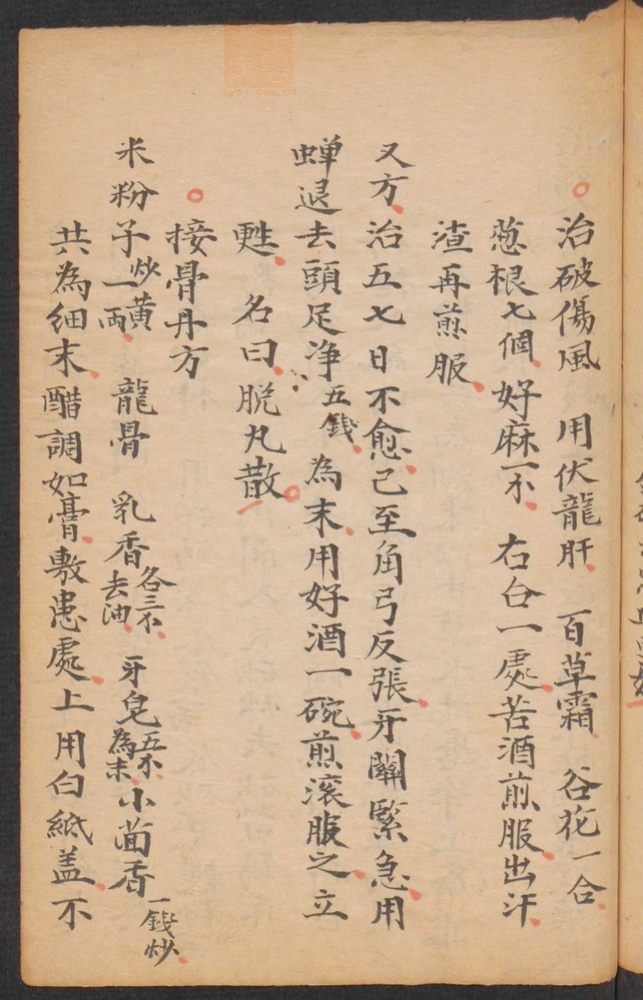 治破傷風　用伏龍肝　百草霜　谷花一合
葱根七個　好麻一不　右合一處苦酒煎服出汗
渣再煎服
又方治五七日不愈己至角弓反張牙關緊急用
蟬退去頭足净五錢為末用好酒一碗煎滚服之立
甦　名曰脱丸散
接骨丹方
米粉子炒黄一兩　龍骨　乳香各三不去油　牙皂五不為末　小茴香一錢炒
共為细末醋調如膏敷患處上用白紙盖不